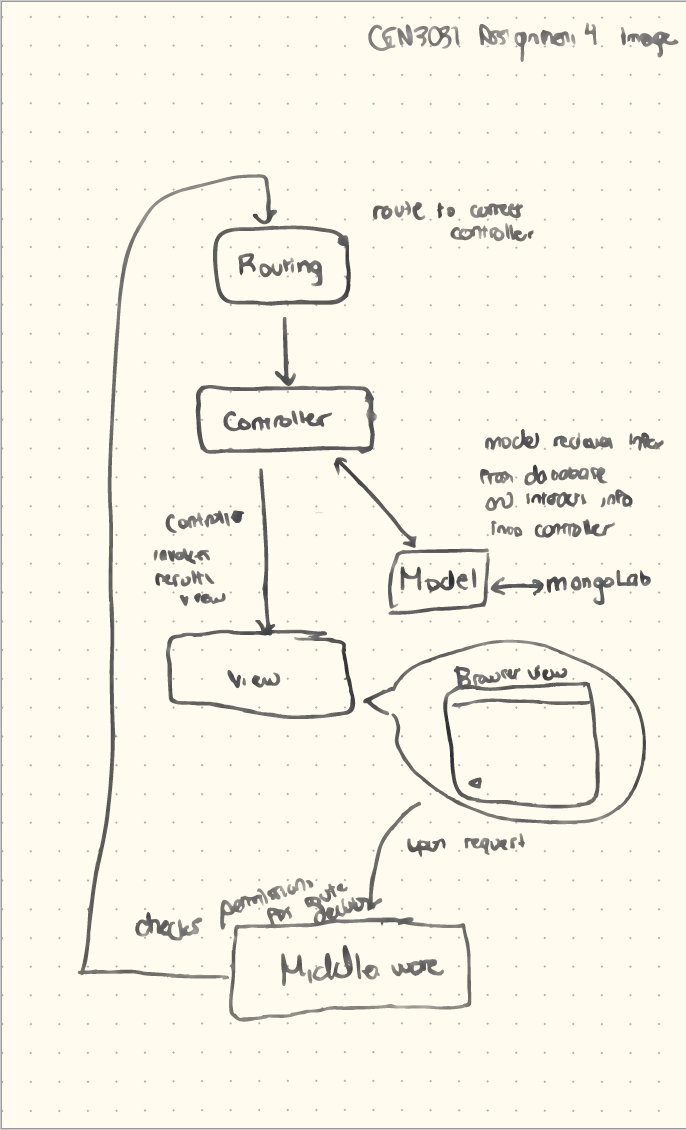 CEN3031 Assignment 4 Image
route to correct
controller
Routing
Controller
model recieves infor
from database
and interacts info
into controller
Controller
invokes
results
view
Model
mongoLab
View
Browser view
upon request
checks permissions
for route
Middleware